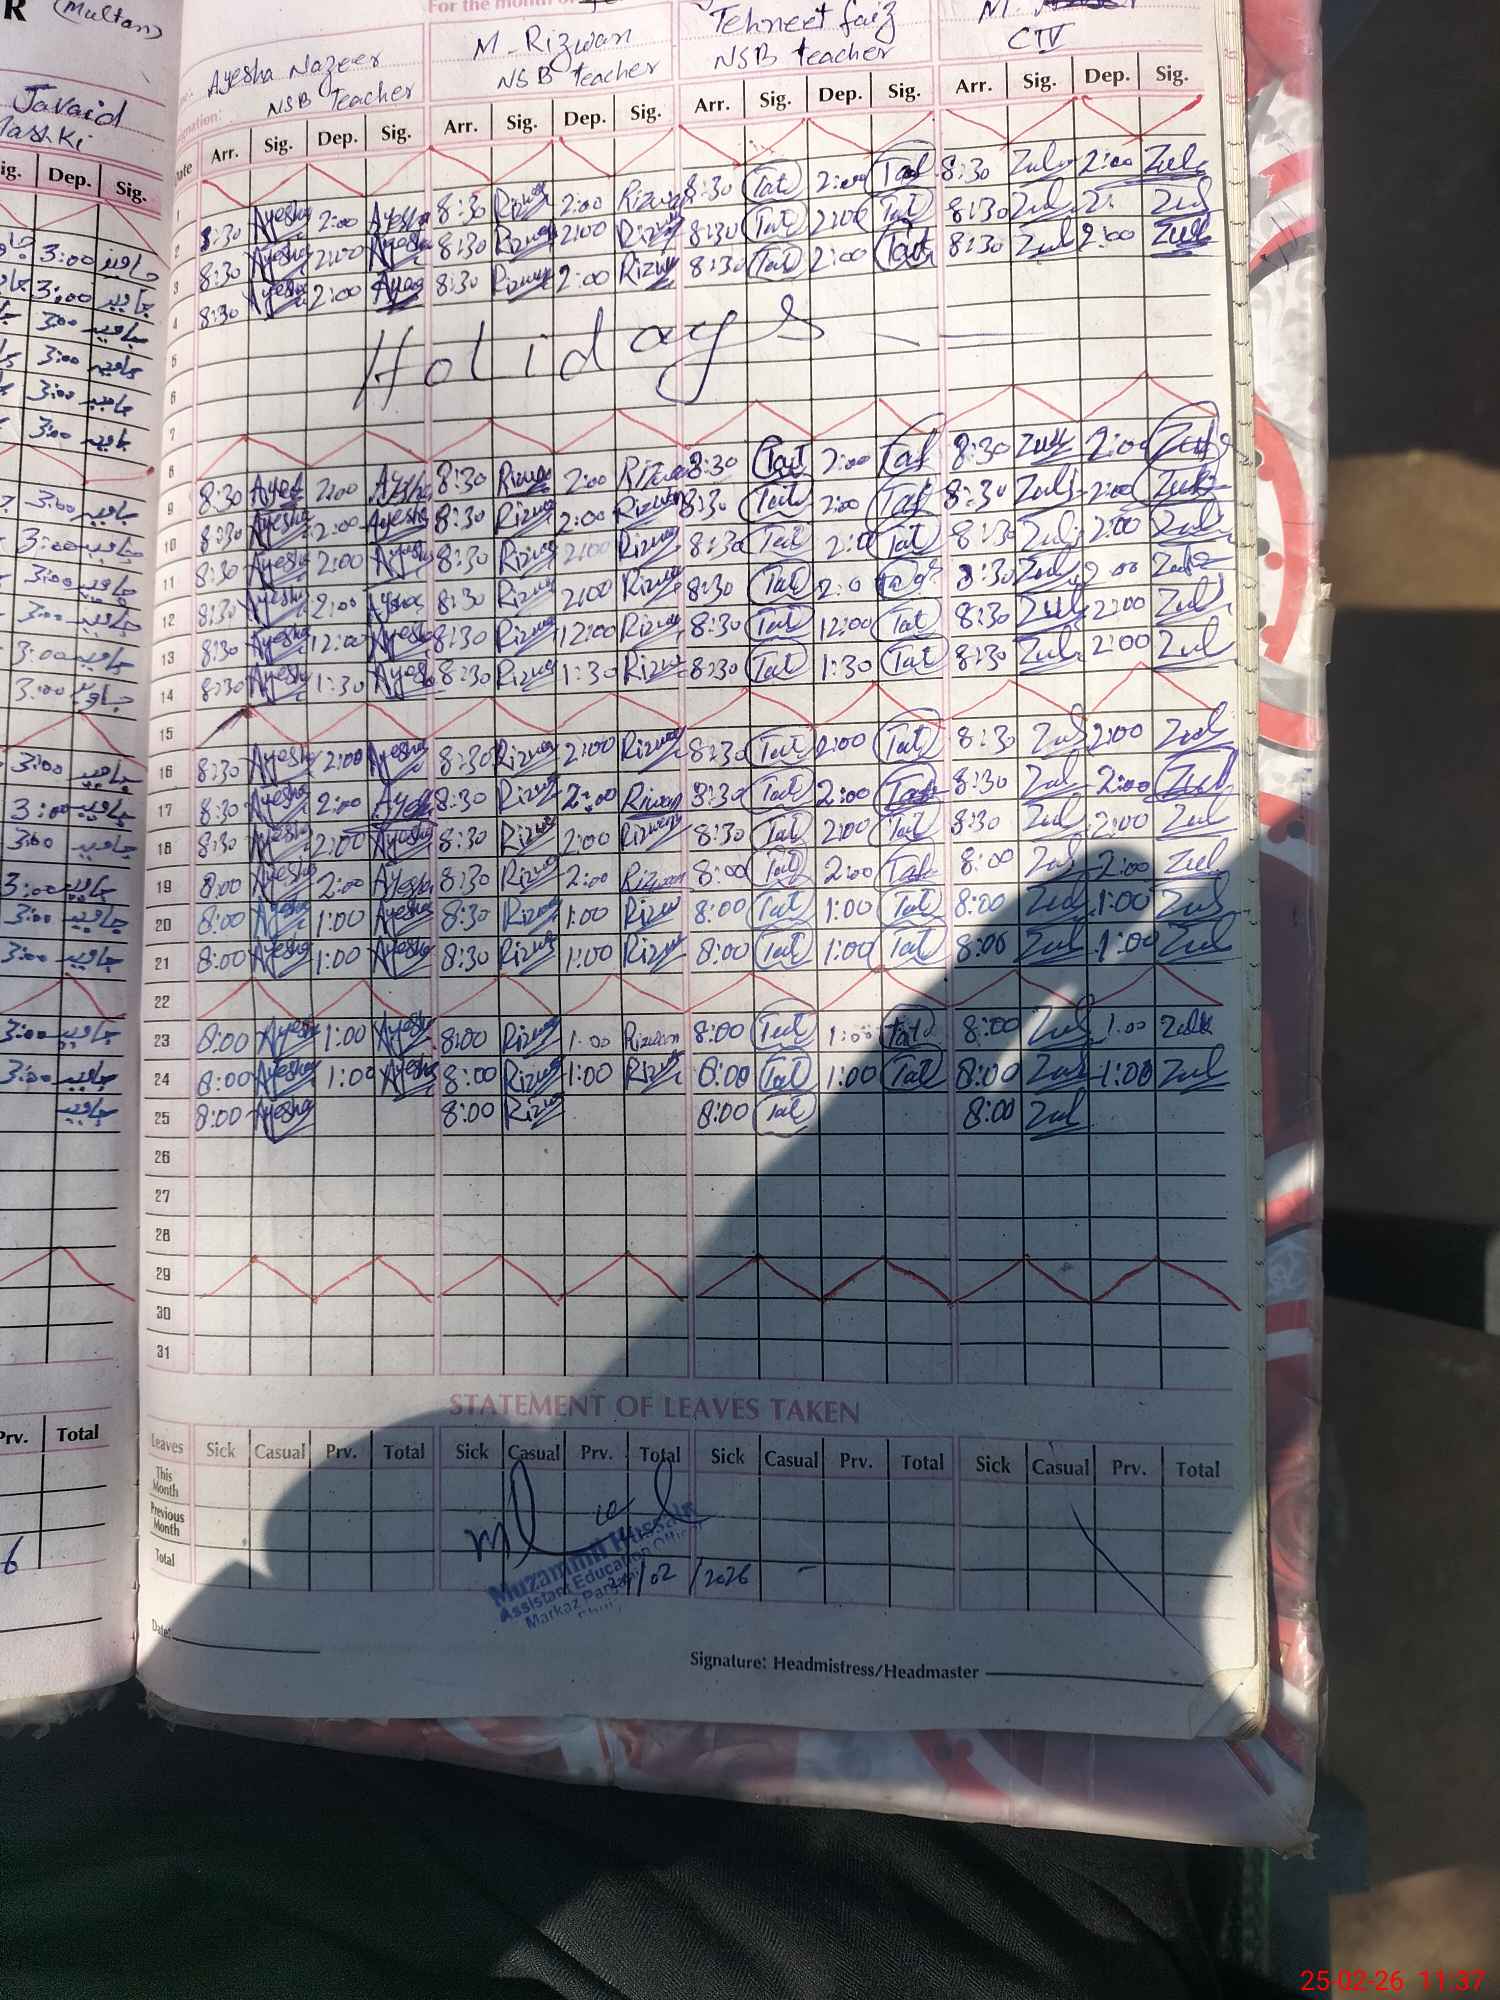 R (Multan)
For the month of
Ayesha Nazeer M. Rizwan Tehneet faiz M.
NSB Teacher NSB teacher NSB teacher CIV
Javaid
Mashki
Date Arr. Sig. Dep. Sig. Arr. Sig. Dep. Sig. Arr. Sig. Dep. Sig. Arr. Sig. Dep. Sig.
ig. Dep. Sig.
1
2 8:30 Ayesha 2:00 Ayesha 8:30 Rizwan 2:00 Rizwan 8:30 Tat 2:00 Tat 8:30 Zul 2:00 Zul
3 8:30 Ayesha 2:00 Ayesha 8:30 Rizwan 2:00 Rizwan 8:30 Tat 2:00 Tat 8:30 Zul 2: Zul
4 8:30 Ayesha 2:00 Ayes 8:30 Rizwan 2:00 Rizwan 8:30 Tat 2:00 Tat 8:30 Zul 2:00 Zul
5 Holidays
6
7
8
9 8:30 Ayesha 2:00 Ayesha 8:30 Rizwan 2:00 Rizwan 8:30 Tat 2:00 Tat 8:30 Zul 2:00 Zul
10 8:30 Ayesha 2:00 Ayesha 8:30 Rizwan 2:00 Rizwan 8:30 Tat 2:00 Tat 8:30 Zul 2:00 Zul
11 8:30 Ayesha 2:00 Ayesha 8:30 Rizwan 2:00 Rizwan 8:30 Tat 2:0 Tat 8:30 Zul 2:00 Zul
12 8:30 Ayesha 2:00 Ayesha 8:30 Rizwan 2:00 Rizwan 8:30 Tat 2:0 Tat 8:30 Zul 2:00 Zul
13 8:30 Ayesha 12:00 Ayesha 8:30 Rizwan 12:00 Rizwan 8:30 Tat 12:00 Tat 8:30 Zul 2:00 Zul
14 8:30 Ayesha 1:30 Ayesha 8:30 Rizwan 1:30 Rizwan 8:30 Tat 1:30 Tat 8:30 Zul 2:00 Zul
15
16 8:30 Ayesha 2:00 Ayesha 8:30 Rizwan 2:00 Rizwan 8:30 Tat 2:00 Tat 8:30 Zul 2:00 Zul
17 8:30 Ayesha 2:00 Ayesha 8:30 Rizwan 2:00 Rizwan 8:30 Tat 2:00 Tat 8:30 Zul 2:00 Zul
18 8:30 Ayesha 2:00 Ayesha 8:30 Rizwan 2:00 Rizwan 8:30 Tat 2:00 Tat 8:30 Zul 2:00 Zul
19 8:00 Ayesha 2:00 Ayesha 8:30 Rizwan 2:00 Rizwan 8:00 Tat 2:00 Tat 8:00 Zul 2:00 Zul
20 8:00 Ayesha 1:00 Ayesha 8:30 Rizwan 1:00 Rizwan 8:00 Tat 1:00 Tat 8:00 Zul 1:00 Zul
21 8:00 Ayesha 1:00 Ayesha 8:30 Rizwan 1:00 Rizwan 8:00 Tat 1:00 Tat 8:00 Zul 1:00 Zul
22
23 8:00 Ayesha 1:00 Ayesha 8:00 Rizwan 1:00 Rizwan 8:00 Tat 1:00 Tat 8:00 Zul 1:00 Zul
24 8:00 Ayesha 1:00 Ayesha 8:00 Rizwan 1:00 Rizwan 8:00 Tat 1:00 Tat 8:00 Zul 1:00 Zul
25 8:00 Ayesha 8:00 Rizwan 8:00 Tat 8:00 Zul
26
27
28
29
30
31
3:00 جاوید
3:00 جاوید
3:00 جاوید
3:00 جاوید
3:00 جاوید
3:00 جاوید
3:00 جاوید
3:00 جاوید
3:00 جاوید
3:00 جاوید
3:00 جاوید
3:00 جاوید
3:00 جاوید
3:00 جاوید
3:00 جاوید
3:00 جاوید
3:00 جاوید
3:00 جاوید
3:00 جاوید
3:00 جاوید
جاوید
Prv. Total
6
STATEMENT OF LEAVES TAKEN
Leaves Sick Casual Prv. Total Sick Casual Prv. Total Sick Casual Prv. Total Sick Casual Prv. Total
This Month
Previous Month
Total
Muzammil Hussain
Assistant Education Officer
Markaz
/02/2026
Date:
Signature: Headmistress/Headmaster
25-02-26 11:37